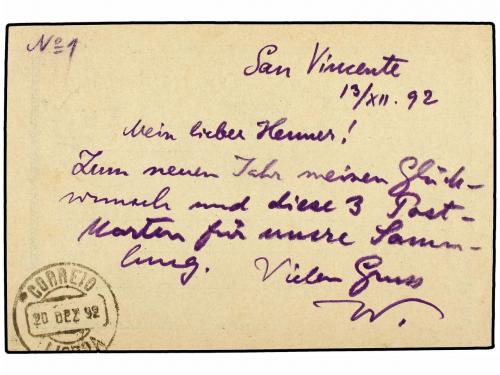 No 1
San Vincente
13/XII. 92
Mein lieber Henner!
Zum neuen Jahr meinen Glück-
wunsch und diese 3 Post-
karten für unsre Samm-
lung. Vielen Gruss
W.
CORREIO
20 DEZ 92
LISBOA